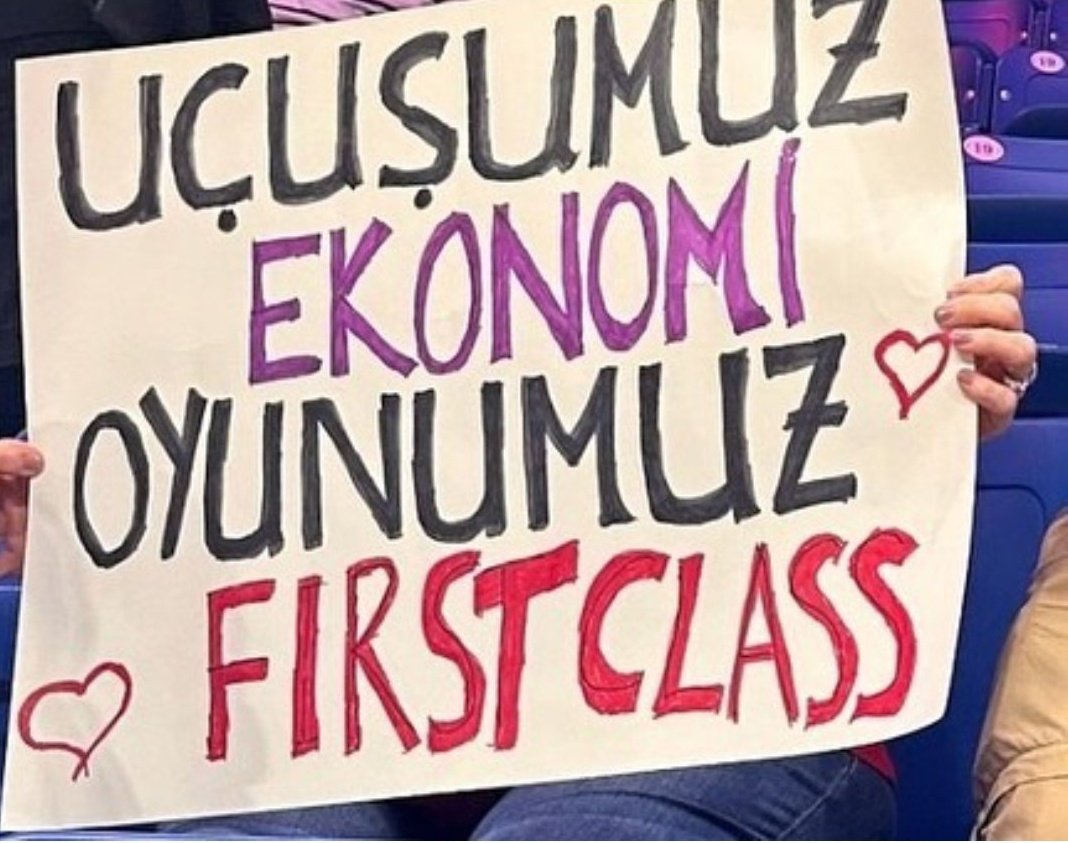 UÇUŞUMUZ
EKONOMİ
OYUNUMUZ
FIRST CLASS
19
19